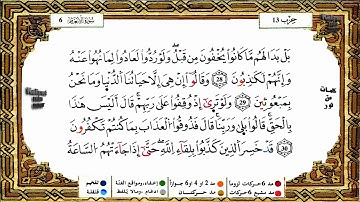 سورة الأنعام 6
حزب 13
بَلْ بَدَا لَهُم مَّا كَانُوا۟ يُخْفُونَ مِن قَبْلُ ۖ وَلَوْ رُدُّوا۟ لَعَادُوا۟ لِمَا نُهُوا۟ عَنْهُ
وَإِنَّهُمْ لَكَٰذِبُونَ 28 وَقَالُوٓا۟ إِنْ هِىَ إِلَّا حَيَاتُنَا ٱلدُّنْيَا وَمَا نَحْنُ
بِمَبْعُوثِينَ 29 وَلَوْ تَرَىٰٓ إِذْ وُقِفُوا۟ عَلَىٰ رَبِّهِمْ ۚ قَالَ أَلَيْسَ هَٰذَا
بِٱلْحَقِّ ۚ قَالُوا۟ بَلَىٰ وَرَبِّنَا ۚ قَالَ فَذُوقُوا۟ ٱلْعَذَابَ بِمَا كُنتُمْ تَكْفُرُونَ 30
قَدْ خَسِرَ ٱلَّذِينَ كَذَّبُوا۟ بِلِقَآءِ ٱللَّهِ ۖ حَتَّىٰٓ إِذَا جَآءَتْهُمُ ٱلسَّاعَةُ
مد 6 حركات لزوما مد 2 أو 4 أو 6 جوازا إخفاء، ومواقع الغنة تفخيم
مد مشبع 6 حركات مد حركتان إدغام، وما لا يلفظ قلقلة